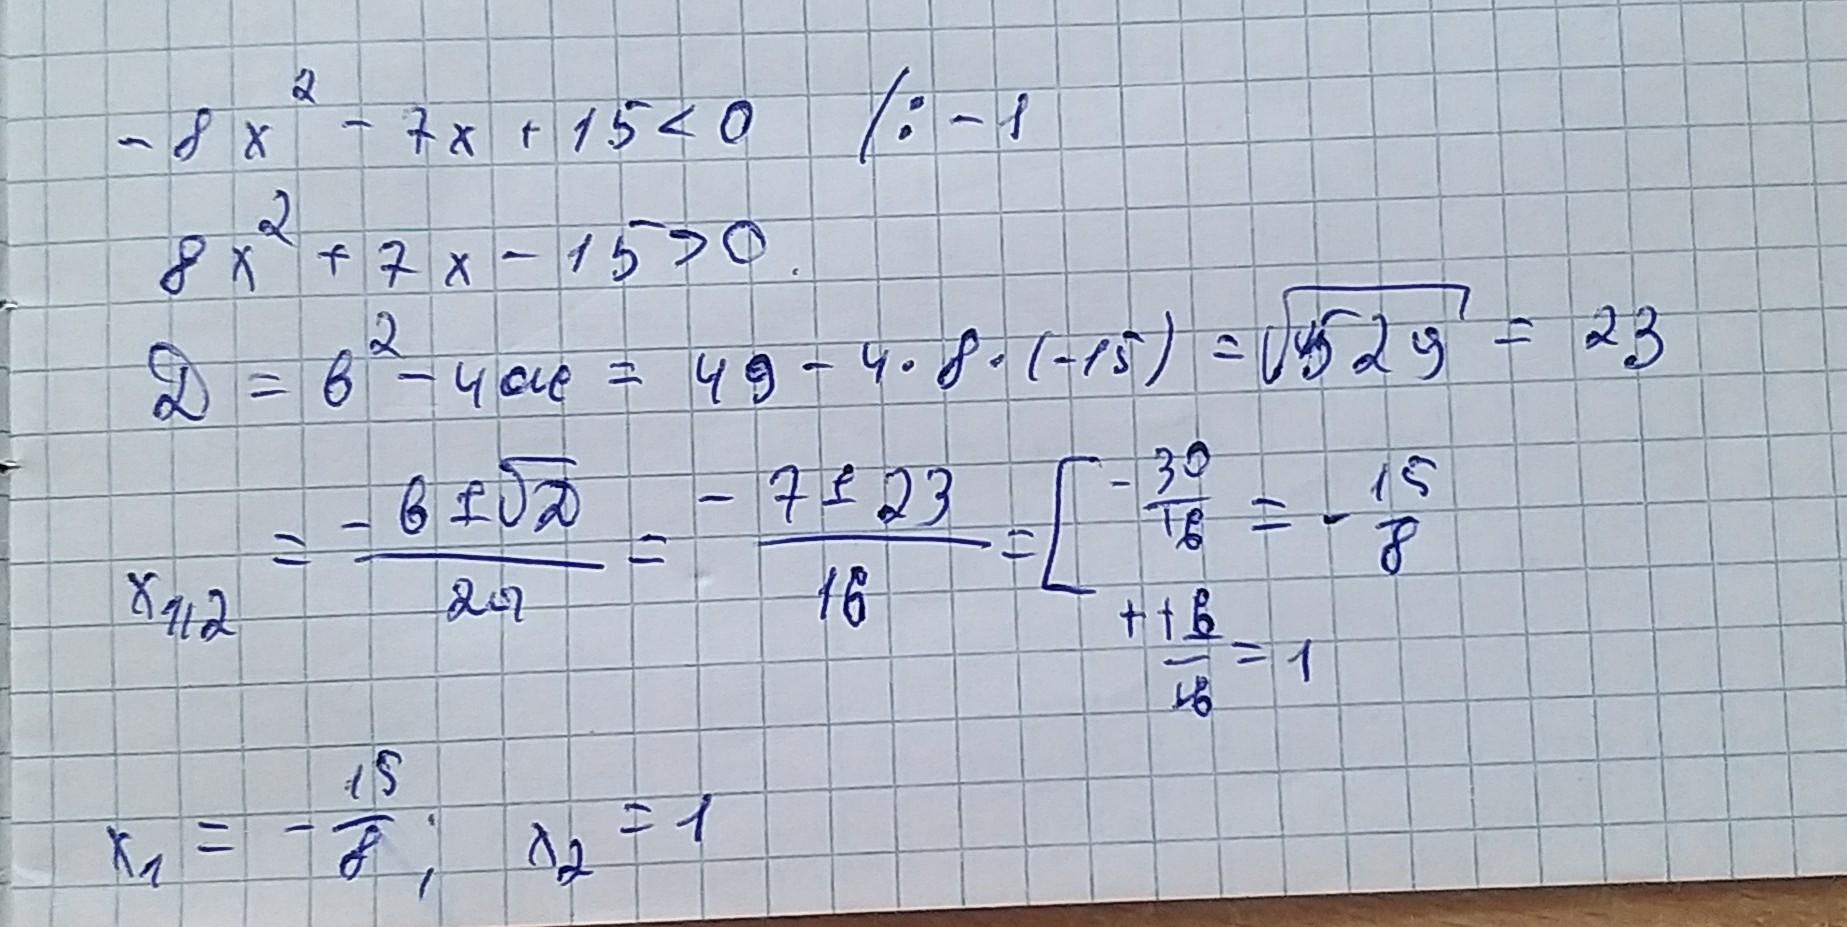 -8x² - 7x + 15 < 0 /: -1
8x² + 7x - 15 > 0.
D = b² - 4ac = 49 - 4·8·(-15) = √529 = 23
x₁,₂ = (-b ± √D)/(2a) = (-7 ± 23)/16 = [ -30/16 = -15/8
++6/16 = 1
x₁ = -15/8; x₂ = 1